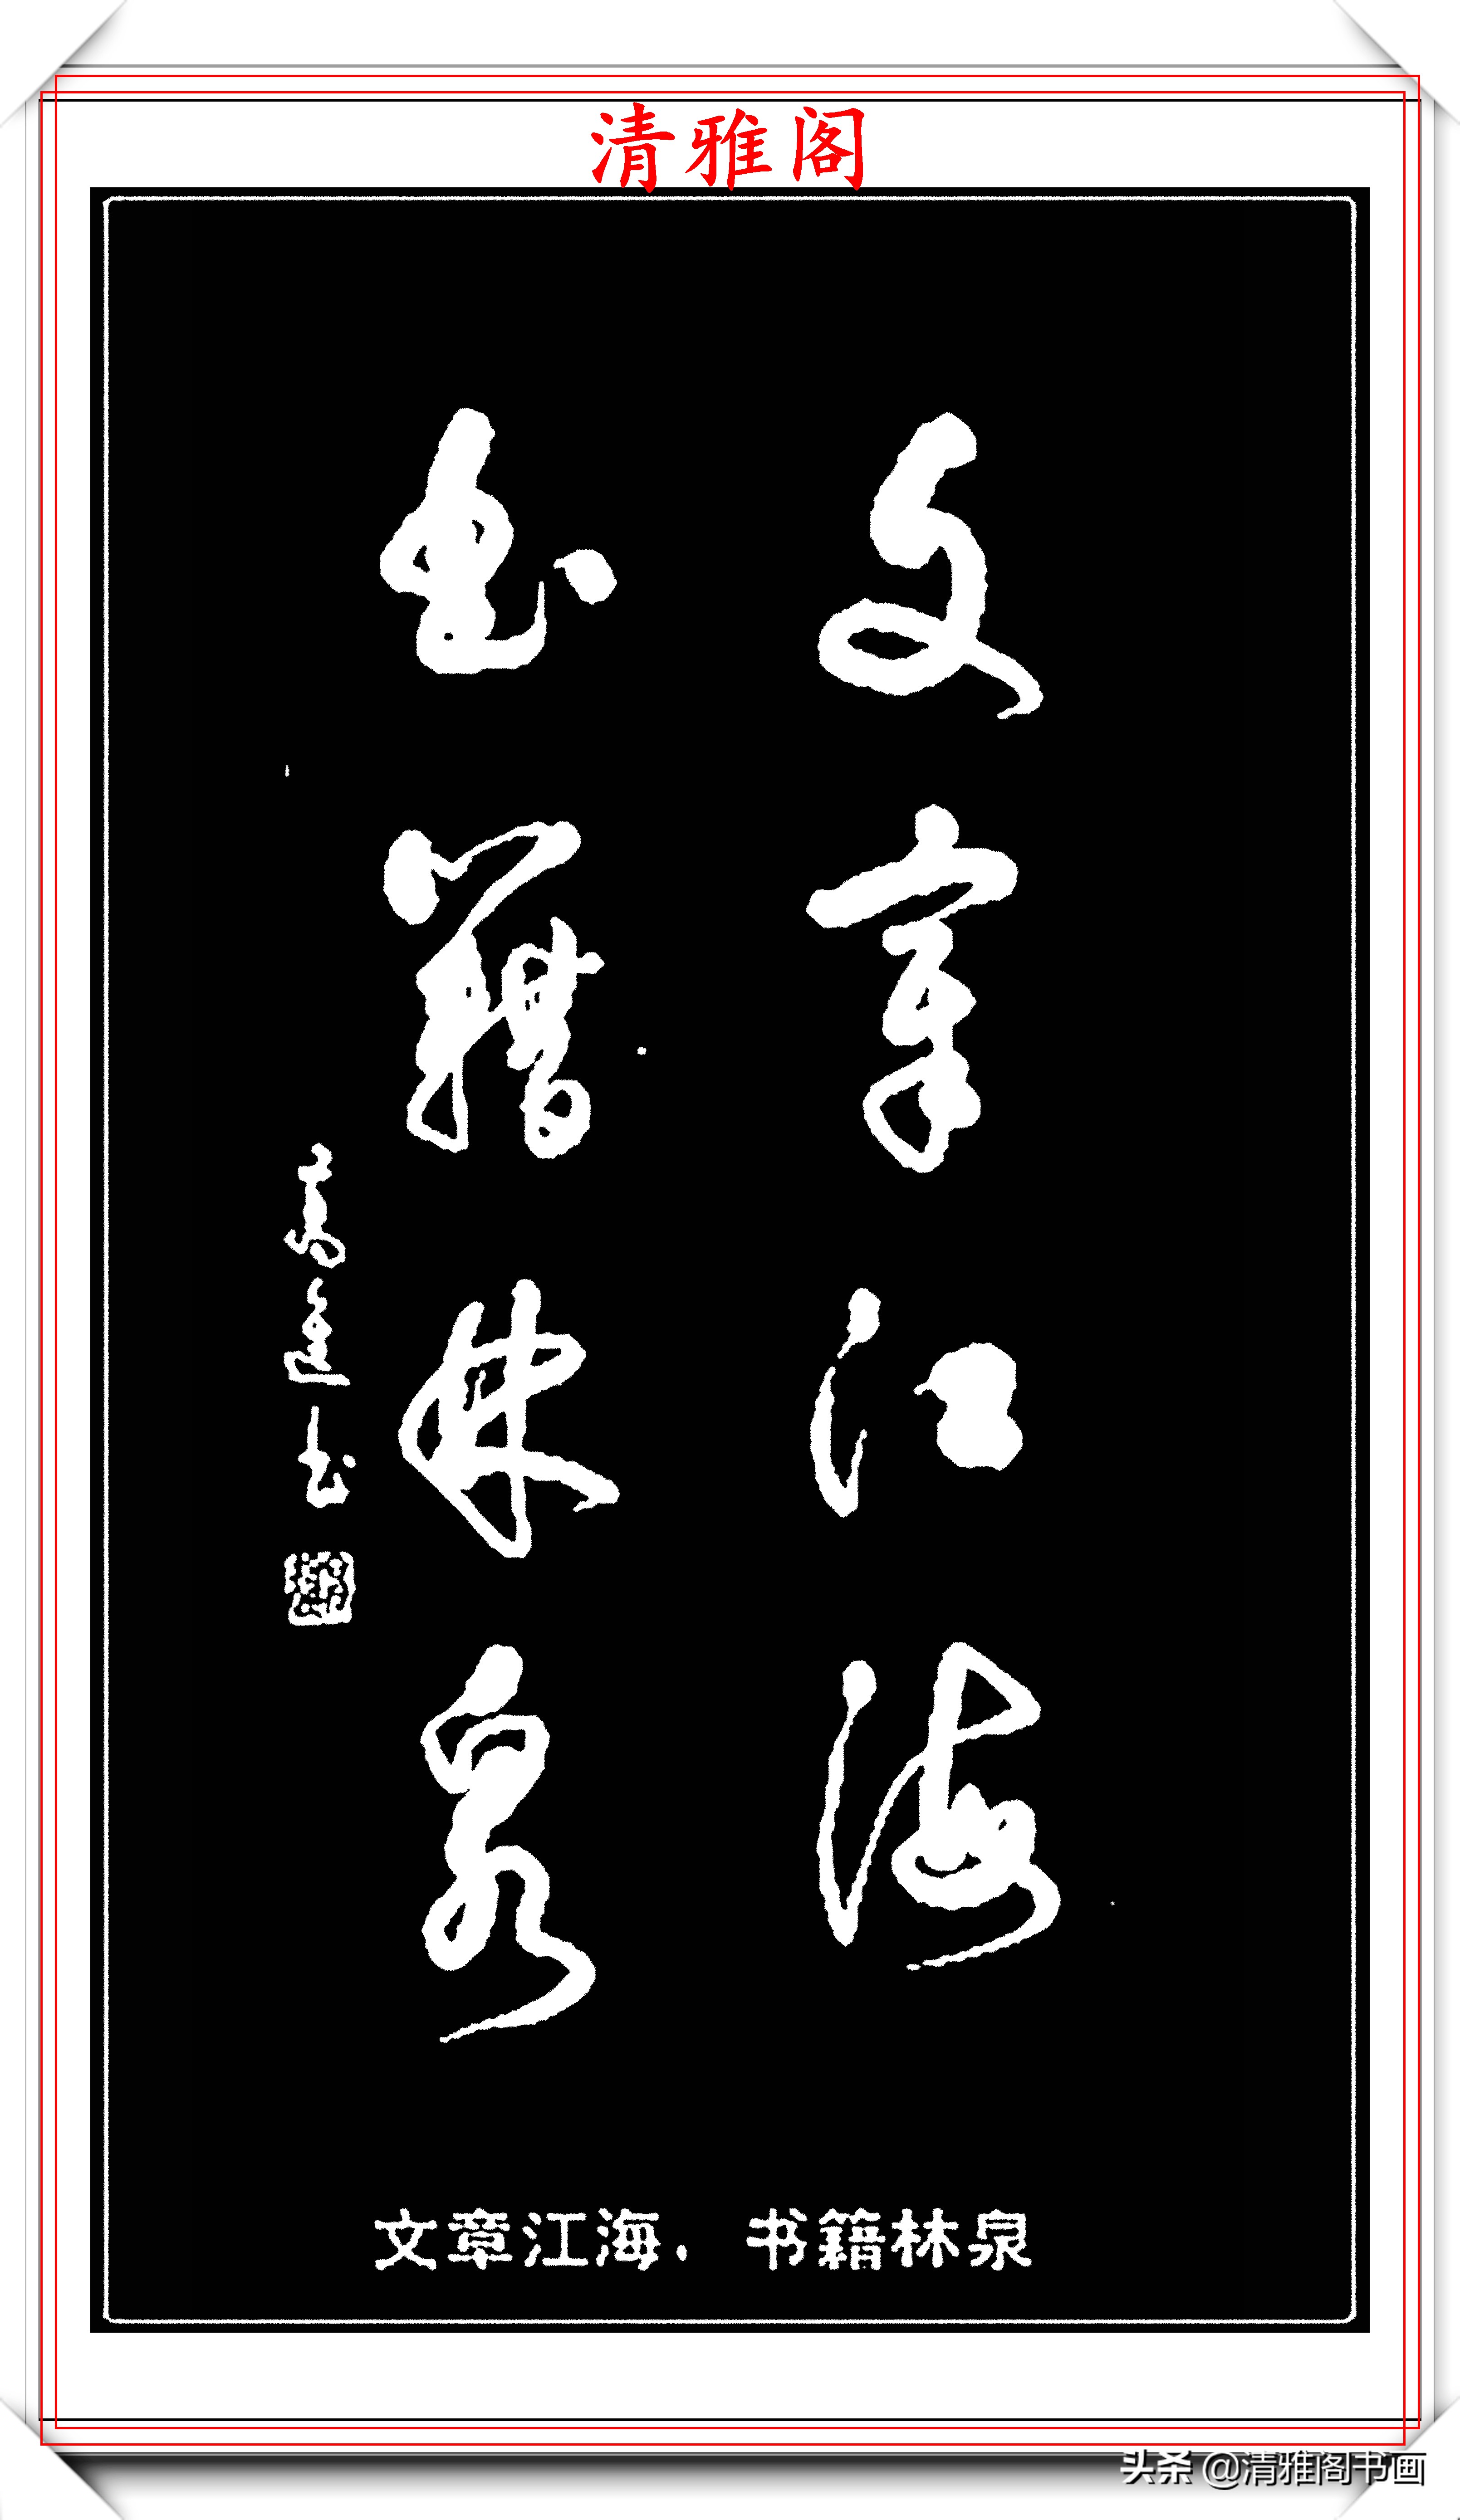 清雅阁
文章江海
书籍林泉
文章江海. 书籍林泉
头条 @清雅阁书画